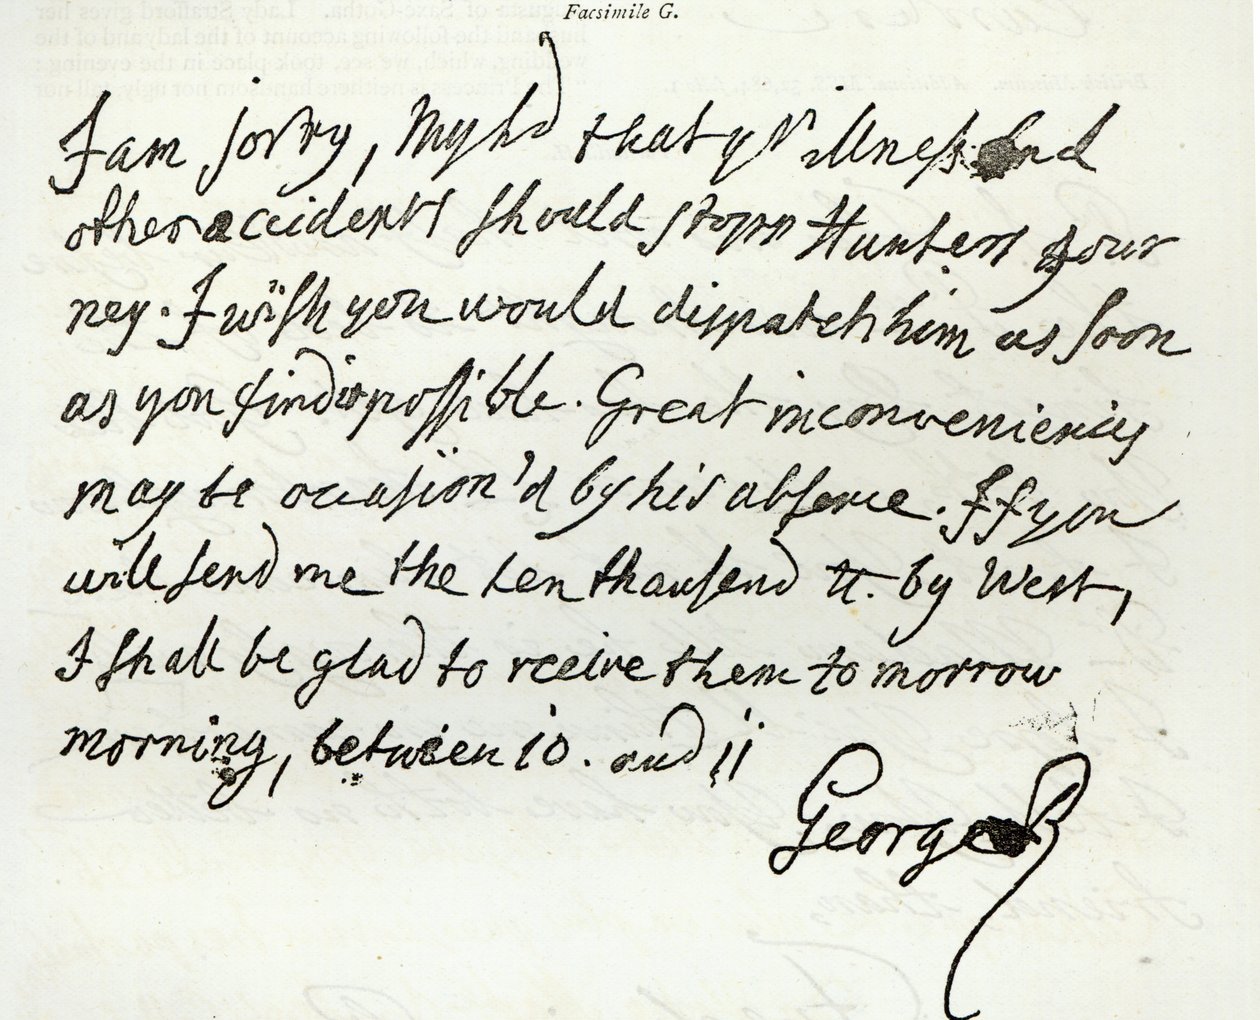 Facsimile G.
I am sorry, My Ld that yr illness and
other accidents should stopp Hunters Jour
ney. I wish you would dispatch him as soon
as you find it possible. Great inconveniencies
may be occasion'd by his absence. If you
will send me the ten thousend tt. by West,
I shall be glad to receive them to morrow
morning, between 10. and 11
George R